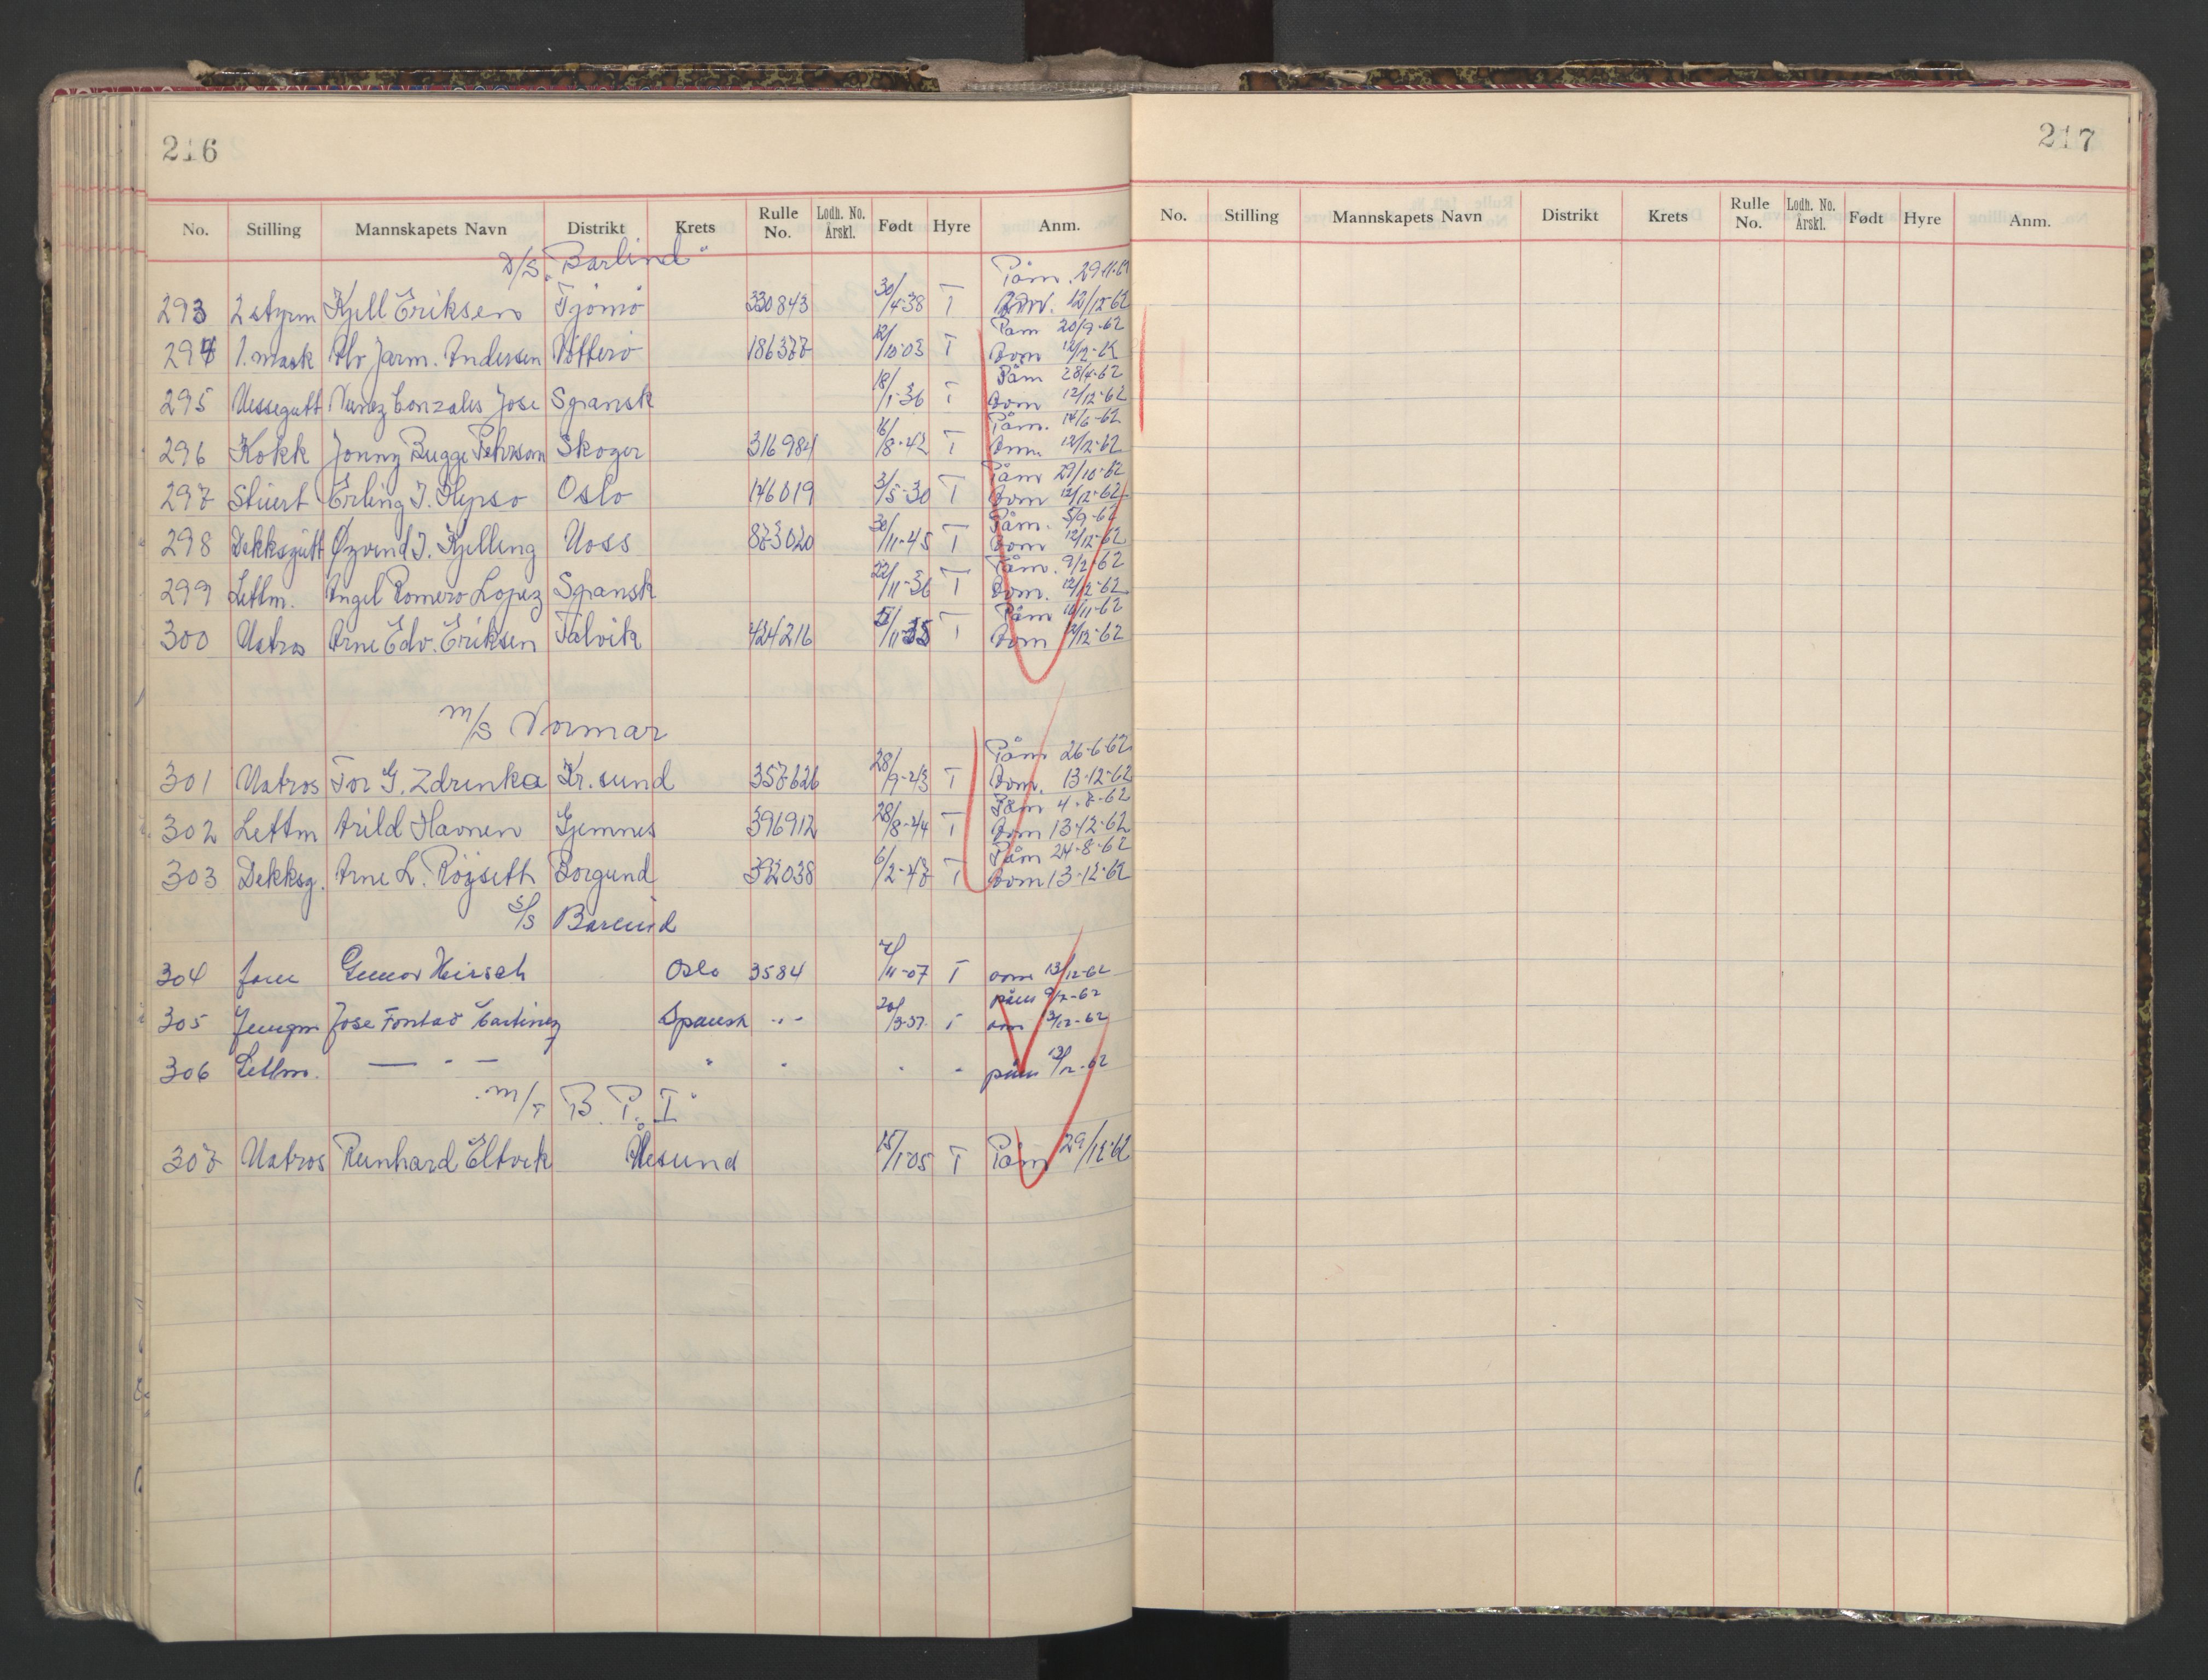 216
No. Stilling Mannskapets Navn Distrikt Krets Rulle No. Lodh. No. Årskl. Født Hyre Anm.
D/S "Barlind"
Påm. 29-11-61
293 2 styrm Kjell Eriksen Tjömö 330843 30/4-38 T Avm. 12/12-62
Påm 20/9-62
294 1. mask Alv Jarm. Andersen Nötterö 186377 12/10-03 T Avm 12/12-62
Påm 28/4-62
295 Messegutt Nunez Conzales Jose Spansk 18/1-36 T Avm 12/12-62
Påm. 14/6-62
296 Kokk Jonny Bugge Pehrson Skoger 316984 16/8-42 T Avm 12/12-62
Påm 29/10-62
297 Stuert Erling J. Hepsø Oslo 146019 3/5-30 T Avm 12/12-62
Påm. 5/9-62
298 Dekksgutt Øyvend J. Kjelleng Voss 873020 30/11-45 T Avm 12/12-62
Påm. 9/2-62
299 Lettm. Angel Romero Lopez Spansk 22/11-36 T Avm. 12/12-62
Påm 16/11-62
300 Matros Arne Edv. Eriksen Talvik 424216 /11-35 T Avm 12/12-62
M/S Normar
Påm 26-6-62
301 Matros Tor G. Zdrenka Kr.sund 357626 28/9-43 T Avm. 13-12-62
Påm 4-7-62
302 Lettm Arild Havnen Gjemnes 396912 28/8-44 T Avm 13-12-62
Påm 24-8-62
303 Dekksg. Arne L. Röyseth Borgund 392038 6/2-47 T Avm 13-12-62
S/S Barlind
304 Gunnar Hirsch Oslo 3584 /11-07 T avm 13/12-62
påm 9/2-62
305 Jungm Jose Spansk -"- 20/3-37 T avm 13/12-62
306 Lettm. — " — " " " " påm 13/12-62
"M/T B. P. I"
307 Matros Reinhard Eltvik Ålesund 15/1-05 T Påm 29/12-62
217
No. Stilling Mannskapets Navn Distrikt Krets Rulle No. Lodh. No. Årskl. Født Hyre Anm.